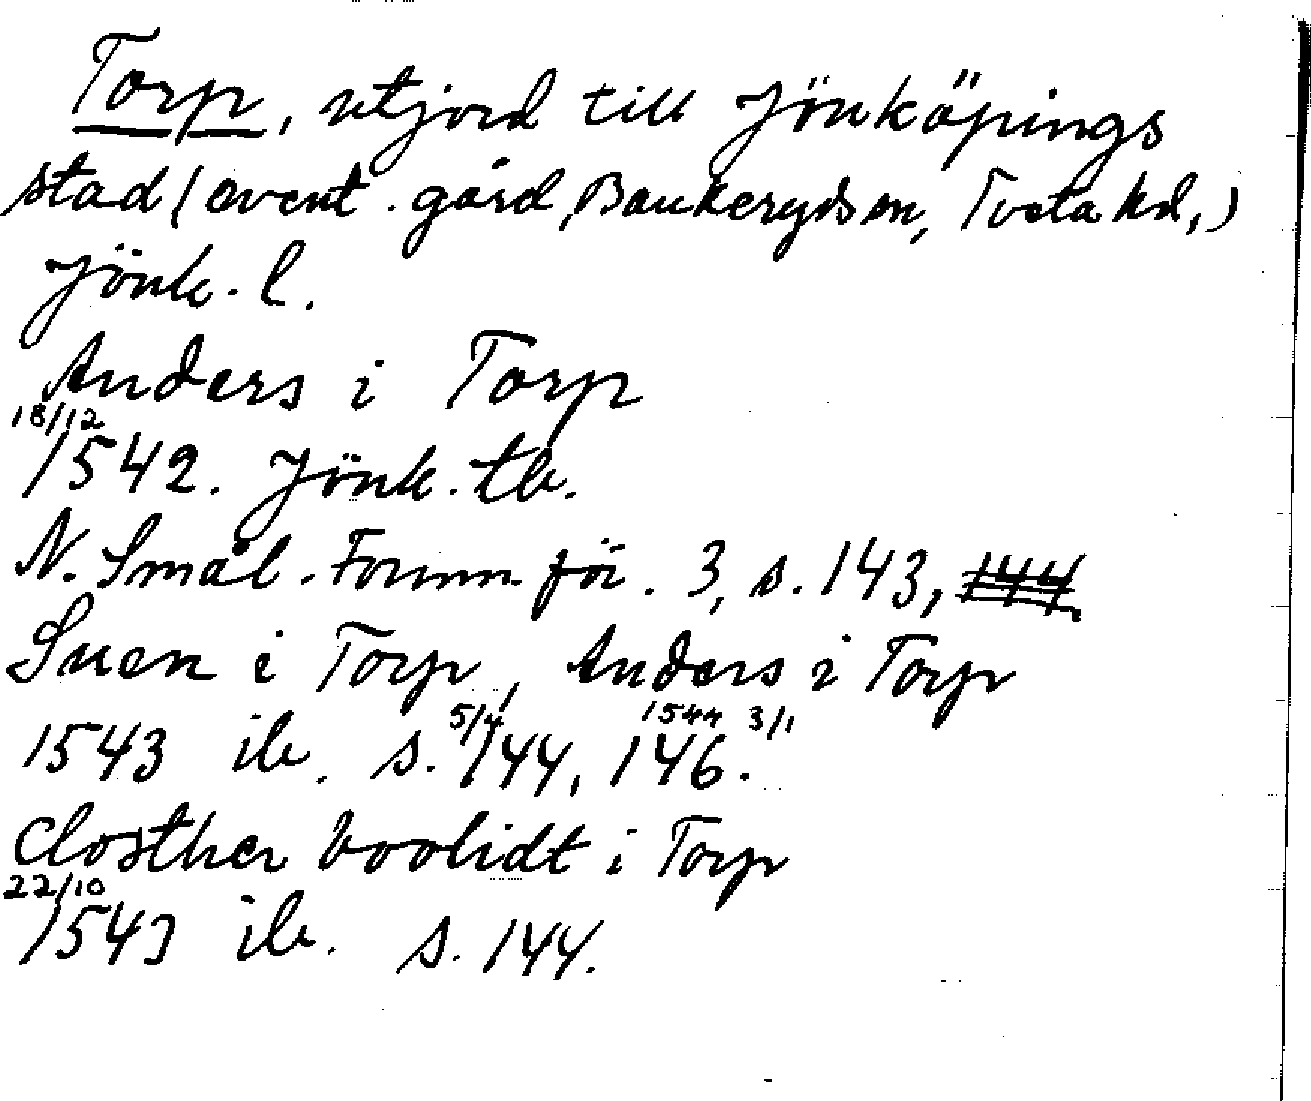 Torp, utjord till Jönköpings
stad (event. gård, Bankeryds sn, Tveta hd,)
Jönk. l.
Anders i Torp
18/12
1542. Jönk. tb.
N. Smål. Fornm för. 3, s. 143, 144.
Suen i Torp, Anders i Torp
5/4 1544 3/1
1543 ib. s. 144, 146.
Closther boolidt i Torp
22/10
1543 ib. s. 144.